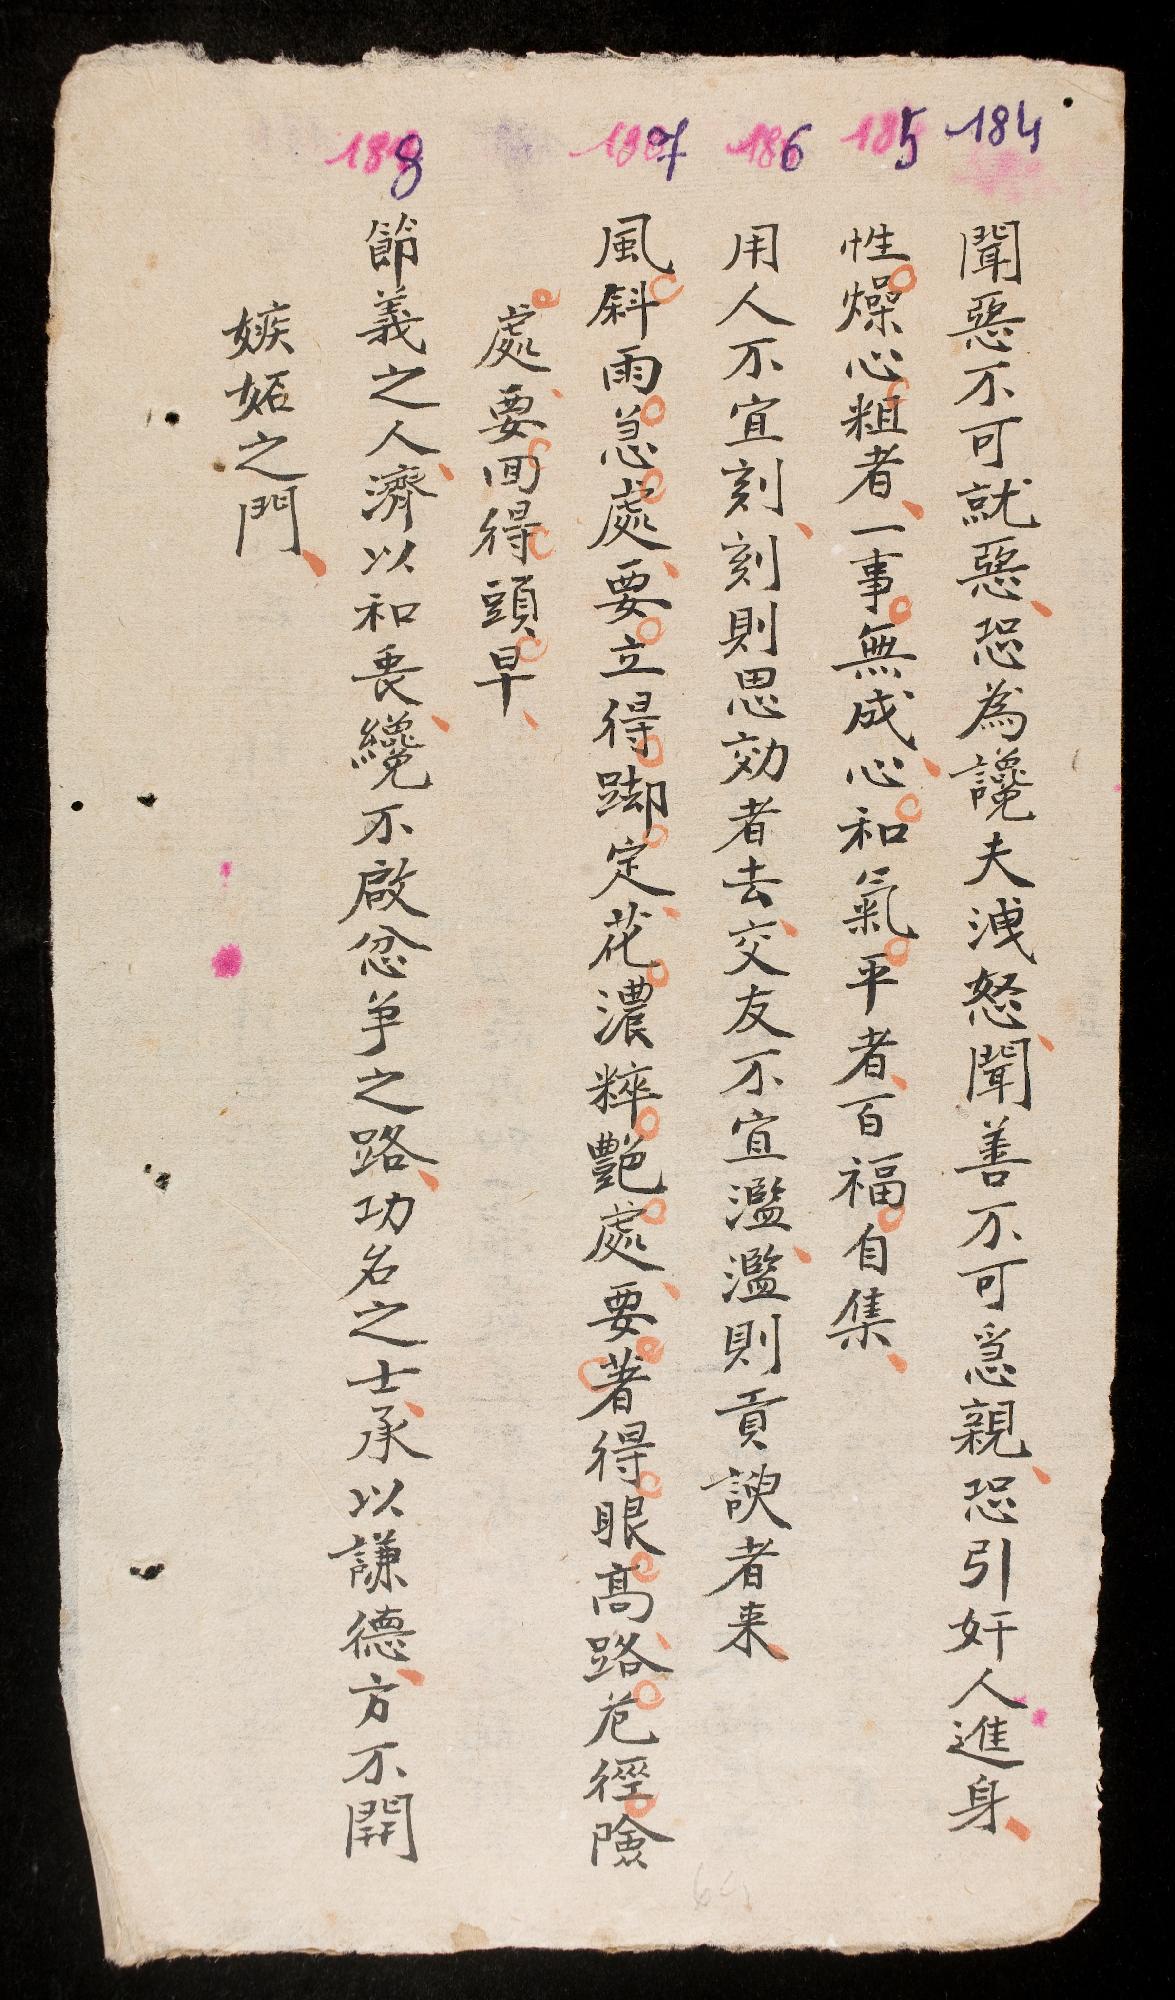 184 聞惡不可就惡恐為讒夫洩怒聞善不可急親恐引奸人進身
185 性燥心粗者一事無成心和氣平者百福自集
186 用人不宜刻刻則思効者去交友不宜濫濫則貢諛者来
187 風斜雨急處要立得踋定花濃粹艷處要著得眼高路危徑險
處要回得頭早
188 節義之人濟以和衷纔不啟忿爭之路功名之士承以謙德方不開
嫉妬之門